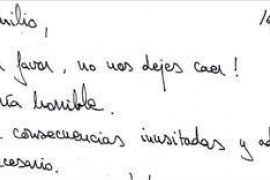 milio,
favor, no nos dejes caer!
ría horrible.
consecuencias inusitadas y ad
cesario.